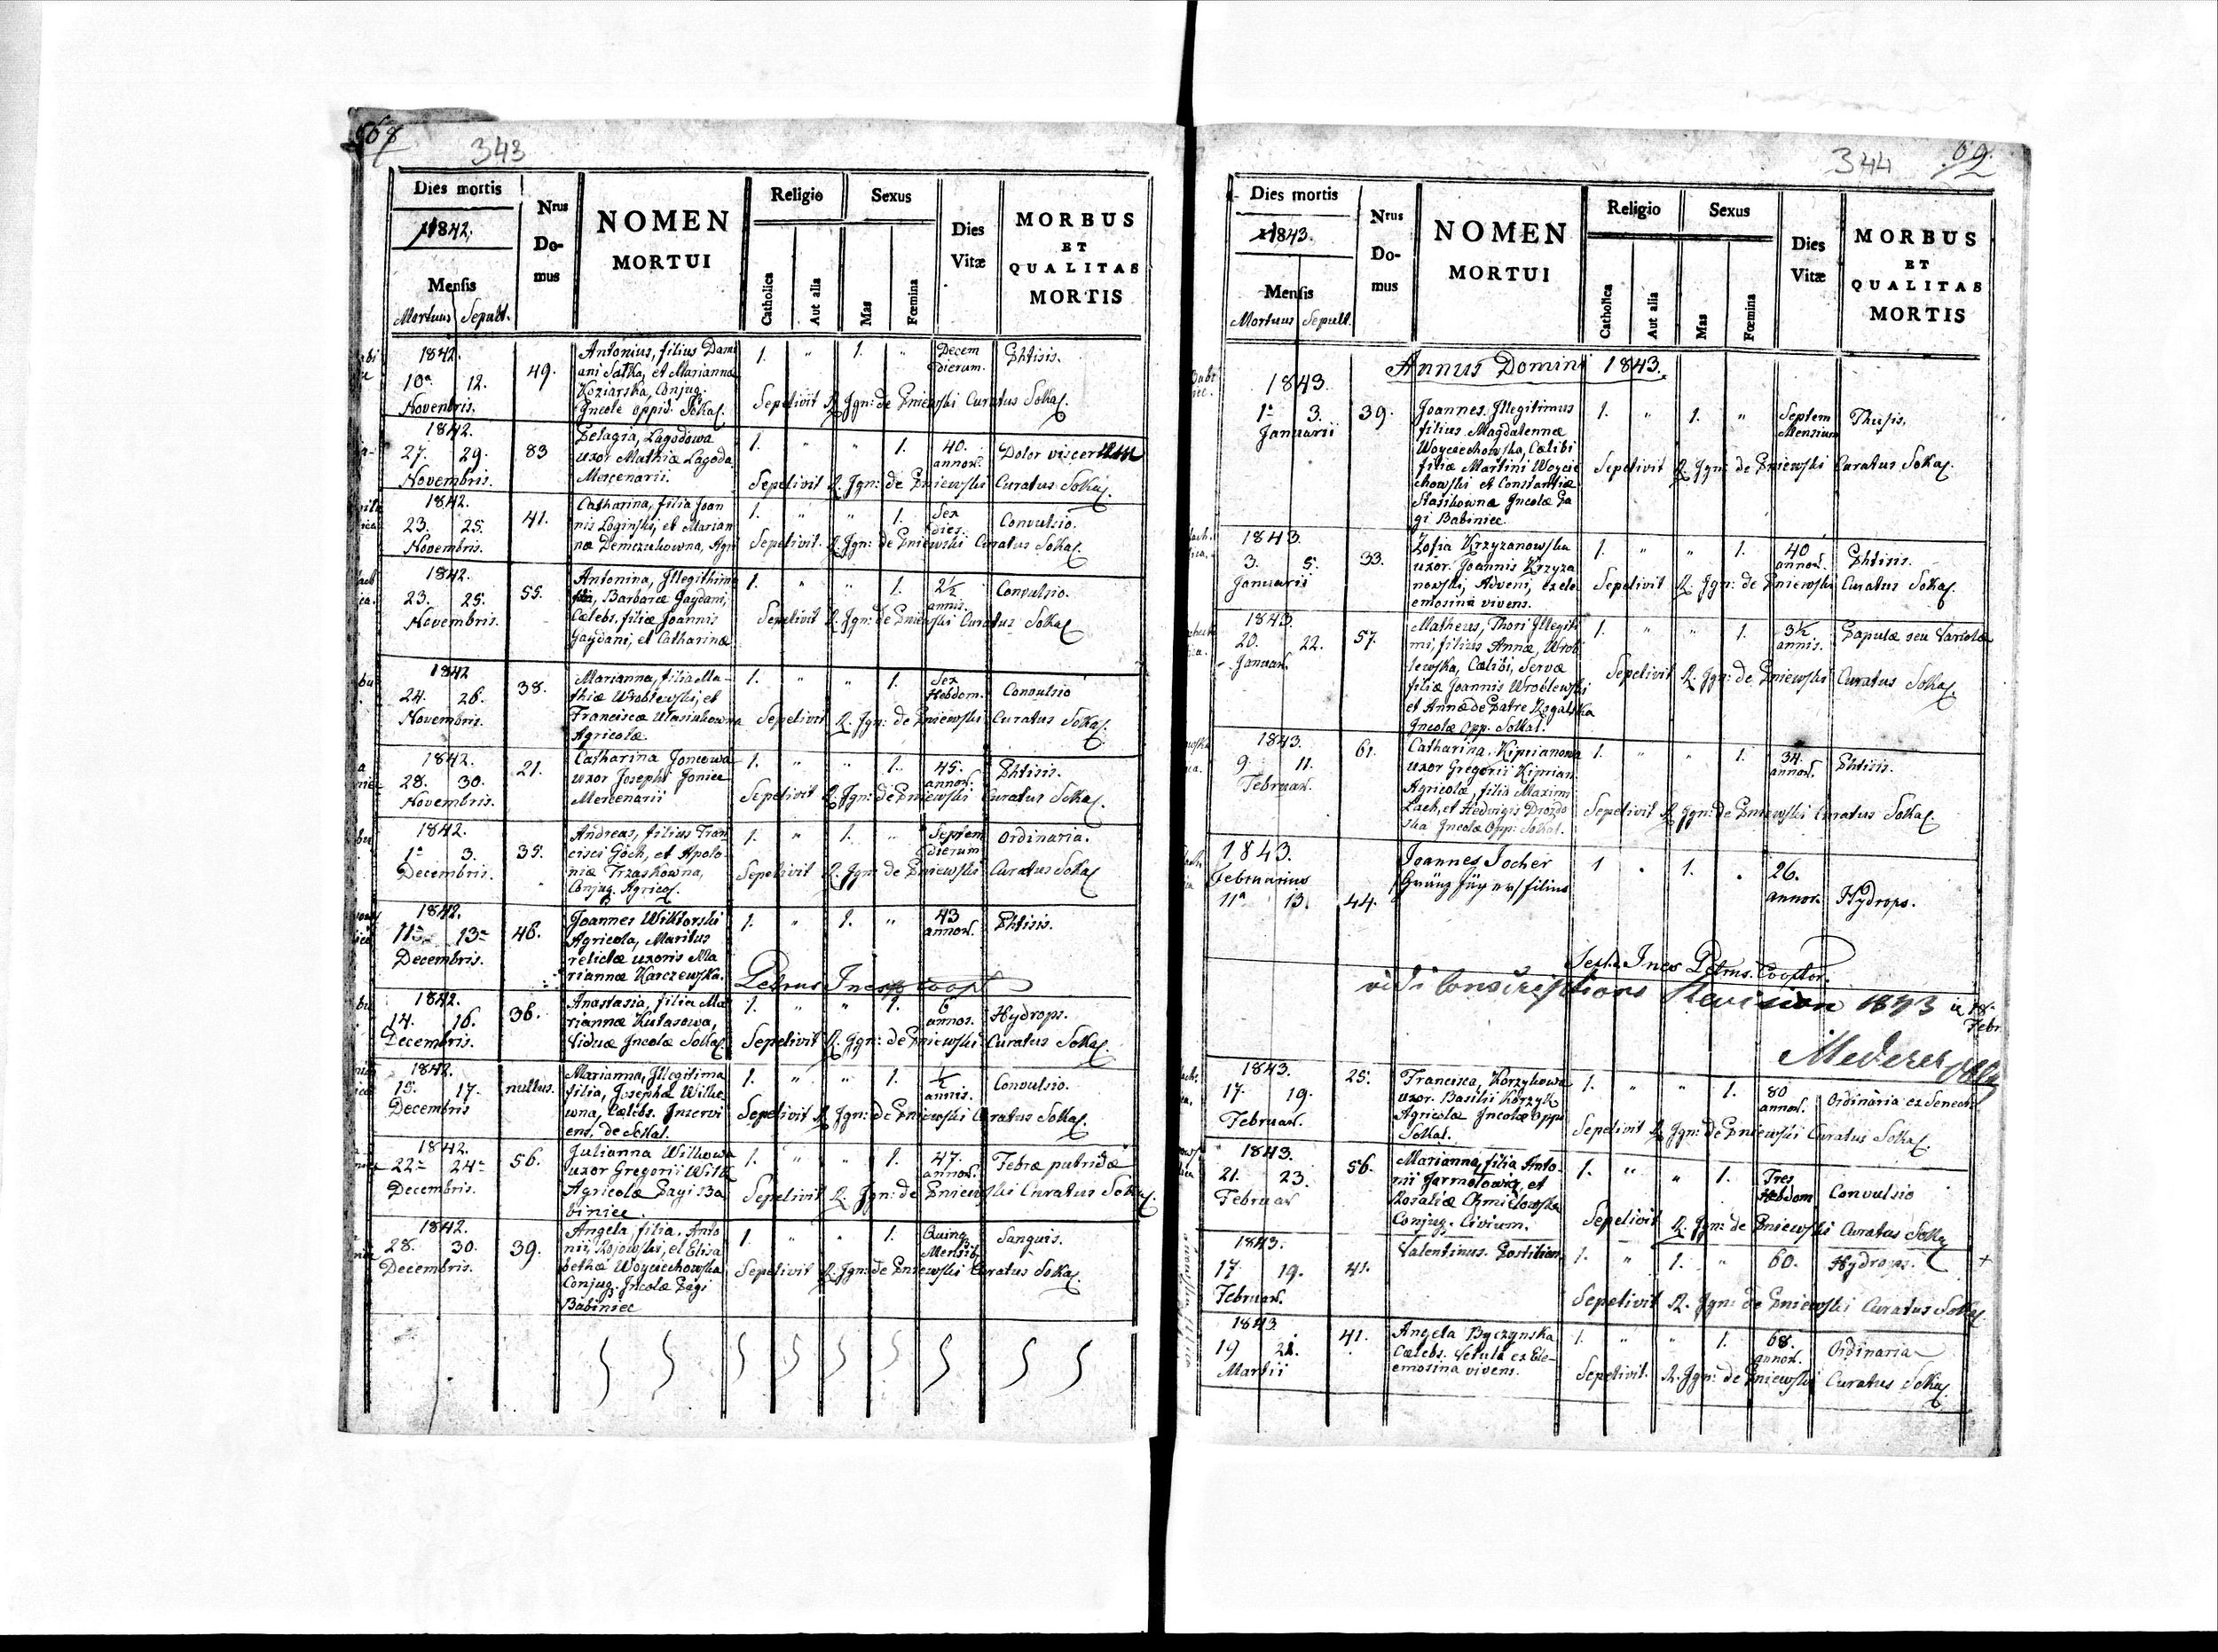 68
343
Dies mortis
1842.
Mensis
Mortuus Sepult.
Nrus
Do-
mus
NOMEN
MORTUI
Religio
Catholica
Aut alia
Sexus
Mas
Fœmina
Dies
Vitæ
MORBUS
ET
QUALITAS
MORTIS
1842.
10ª 12.
Novembris.
49.
Antonius, filius Dami
ani Satka, et Marianna
Koziarska, Conjug.
Incolæ oppid. Sokal.
1. " 1. "
Decem
dierum.
Phtisis.
Sepelivit R. Ign: de Pniewski Curatus Sokal.
1842.
27. 29.
Novembris.
83
Pelagia, Lagodowa
uxor Mathiæ Lagoda
Mercenarii.
1. " " 1.
40.
annor.
Dolor viscerum
Sepelivit R. Ign: de Pniewski Curatus Sokal.
1842.
23. 25.
Novembris.
41.
Catharina, filia Joan
nis Loginski, et Marian
næ Demczukowna, Agri
1. " " 1.
Sex
dies.
Convulsio.
Sepelivit R. Ign: de Pniewski Curatus Sokal.
1842.
23. 25.
Novembris.
55.
Antonina, Illegithima
Barbaræ Gaydani,
Cælebs, filiæ Joannis
Gaydani, et Catharinæ
1. " " 1.
2½
annis.
Convulsio.
Sepelivit R. Ign: de Pniewski Curatus Sokal
1842
24. 26.
Novembris.
38.
Marianna, filia Ma-
thiæ Wroblewski, et
Franciscæ Utasiukowna
Agricolæ.
1. " " 1.
Sex
Hebdom.
Convulsio
Sepelivit R. Ign: de Pniewski Curatus Sokal.
1842.
28. 30.
Novembris.
21.
Catharina Joncowa
uxor Josephi Joniec
Mercenarii
1. " " 1.
45.
annor.
Phtisis.
Sepelivit R. Ign: de Pniewski Curatus Sokal.
1842.
1ª 3.
Decembris.
35.
Andreas, filius Fran
cisci Göch, et Apolo-
niæ Trzaskowna,
Conjug. Agricol.
1. " 1. "
Septem
dierum
Ordinaria.
Sepelivit R. Ign: de Pniewski Curatus Sokal
1842.
11ª 13ª
Decembris.
46.
Joannes Wiktorski
Agricola, Maritus
relictæ uxoris Ma
riannæ Karczewska.
1. " 1. "
43
annor.
Phtisis.
Petrus Ines Coopt
1842.
14. 16.
Decembris.
36.
Anastasia, filia Ma
riannæ Kutasowa,
Viduæ Incolæ Sokal.
1. " " 1.
6
annos.
Hydrops.
Sepelivit R. Ign: de Pniewski Curatus Sokal.
1842.
15. 17.
Decembris
nullus.
Marianna, Illegitima
filia, Josephæ Wilko
wna, Cælebs. Inservi
ens, de Sokal.
1. " " 1.
½
annis.
Convulsio.
Sepelivit R Ign: de Pniewski Curatus Sokal.
1842.
22ª 24ª
Decembris.
56.
Julianna Wilkowa
uxor Gregorii Wilk
Agricolæ Pagi Ba
biniec.
1. " " 1.
47.
annor.
Febræ putridæ
Sepelivit R. Ign: de Pniewski Curatus Sokal.
1842.
28. 30.
Decembris.
39.
Angela, filia, Anto
nii, Rojowski, et Elisa
bethæ Woyciechowska
Conjug. Incolæ Pagi
Babiniec
1. " " 1.
Quinq
Mensib.
Sanguis.
Sepelivit R. Ign: de Pniewski Curatus Sokal.
344
69.
Dies mortis
1843.
Mensis
Mortuus Sepult.
Nrus
Do-
mus
NOMEN
MORTUI
Religio
Catholica
Aut alia
Sexus
Mas
Fœmina
Dies
Vitæ
MORBUS
ET
QUALITAS
MORTIS
Annus Domini 1843.
1843.
1ª 3.
Januarii
39.
Joannes. Illegitimus
filius Magdalennæ
Woyciechowska, Cælibi
filiæ Martini Woycie
chowski et Constantiæ
Stasikowna Incolæ Pa
gi Babiniec.
1. " 1. "
Septem
Mensium
Thusis.
Sepelivit R. Ign: de Pniewski Curatus Sokal.
1843.
3. 5.
Januarii
33.
Zofia Krzyzanowska
uxor Joannis Krzyza
nowski, Adveni, ex ele
emosina vivens.
1. " " 1.
40
annor.
Phtisis.
Sepelivit R. Ign: de Pniewski Curatus Sokal.
1843.
20. 22.
Januar.
57.
Matheus, Thori Illegit
mi, filius Annæ, Wrob
lewska, Cælibi, Servæ
filiæ Joannis Wroblewski
et Annæ de Patre Rogalska
Incolæ Opp. Sokal.
1. " " 1.
3½
annis.
Papulæ seu Variolæ
Sepelivit R. Ign: de Pniewski Curatus Sokal.
1843.
9. 11.
Februar.
61.
Catharina, Kiprianowa
uxor Gregorii Kiprian
Agricolæ, filia Maximi
Lach, et Hedvigis Drozdo
ska Incolæ Opp: Sokal.
1. " " 1.
34.
annor.
Phtisis.
Sepelivit R Ign: de Pniewski Curatus Sokal.
1843.
Februarius
11ª 13.
44.
Joannes Jocher
Gränz Jäger filius
1 . 1. .
26.
annor.
Hydrops.
Petrus Cooptor.
vidi Conscriptions Revision 1843 in 18.
Febr.
Mederer
1843.
17. 19.
Februar.
25.
Francisca, Korzykowa
uxor. Basilii Korzyk
Agricolæ Incolæ Opp.
Sokal.
1. " " 1.
80
annor.
Ordinaria ex Senect
Sepelivit R Ign: de Pniewski Curatus Sokal.
1843.
21. 23.
Februar
56.
Marianna, filia Anto-
nii Jarmolowicz, et
Rosaliæ Chmielowska
Conjug. Civium.
1. " " 1.
Tres
Hebdom
Convulsio
Sepelivit R. Ign: de Pniewski Curatus Sokal
1843.
17. 19.
Februar.
41.
Valentinus. Postilion
1. " 1. "
60.
Hydrops.
+
Sepelivit R. Ign: de Pniewski Curatus Sokal
1843.
19 21.
Martii
41.
Angela Byczynska
Cælebs. Vetula ex Ele-
emosina vivens.
1. " " 1.
68.
annor.
Ordinaria
Sepelivit. R. Ign: de Pniewski Curatus Sokal.